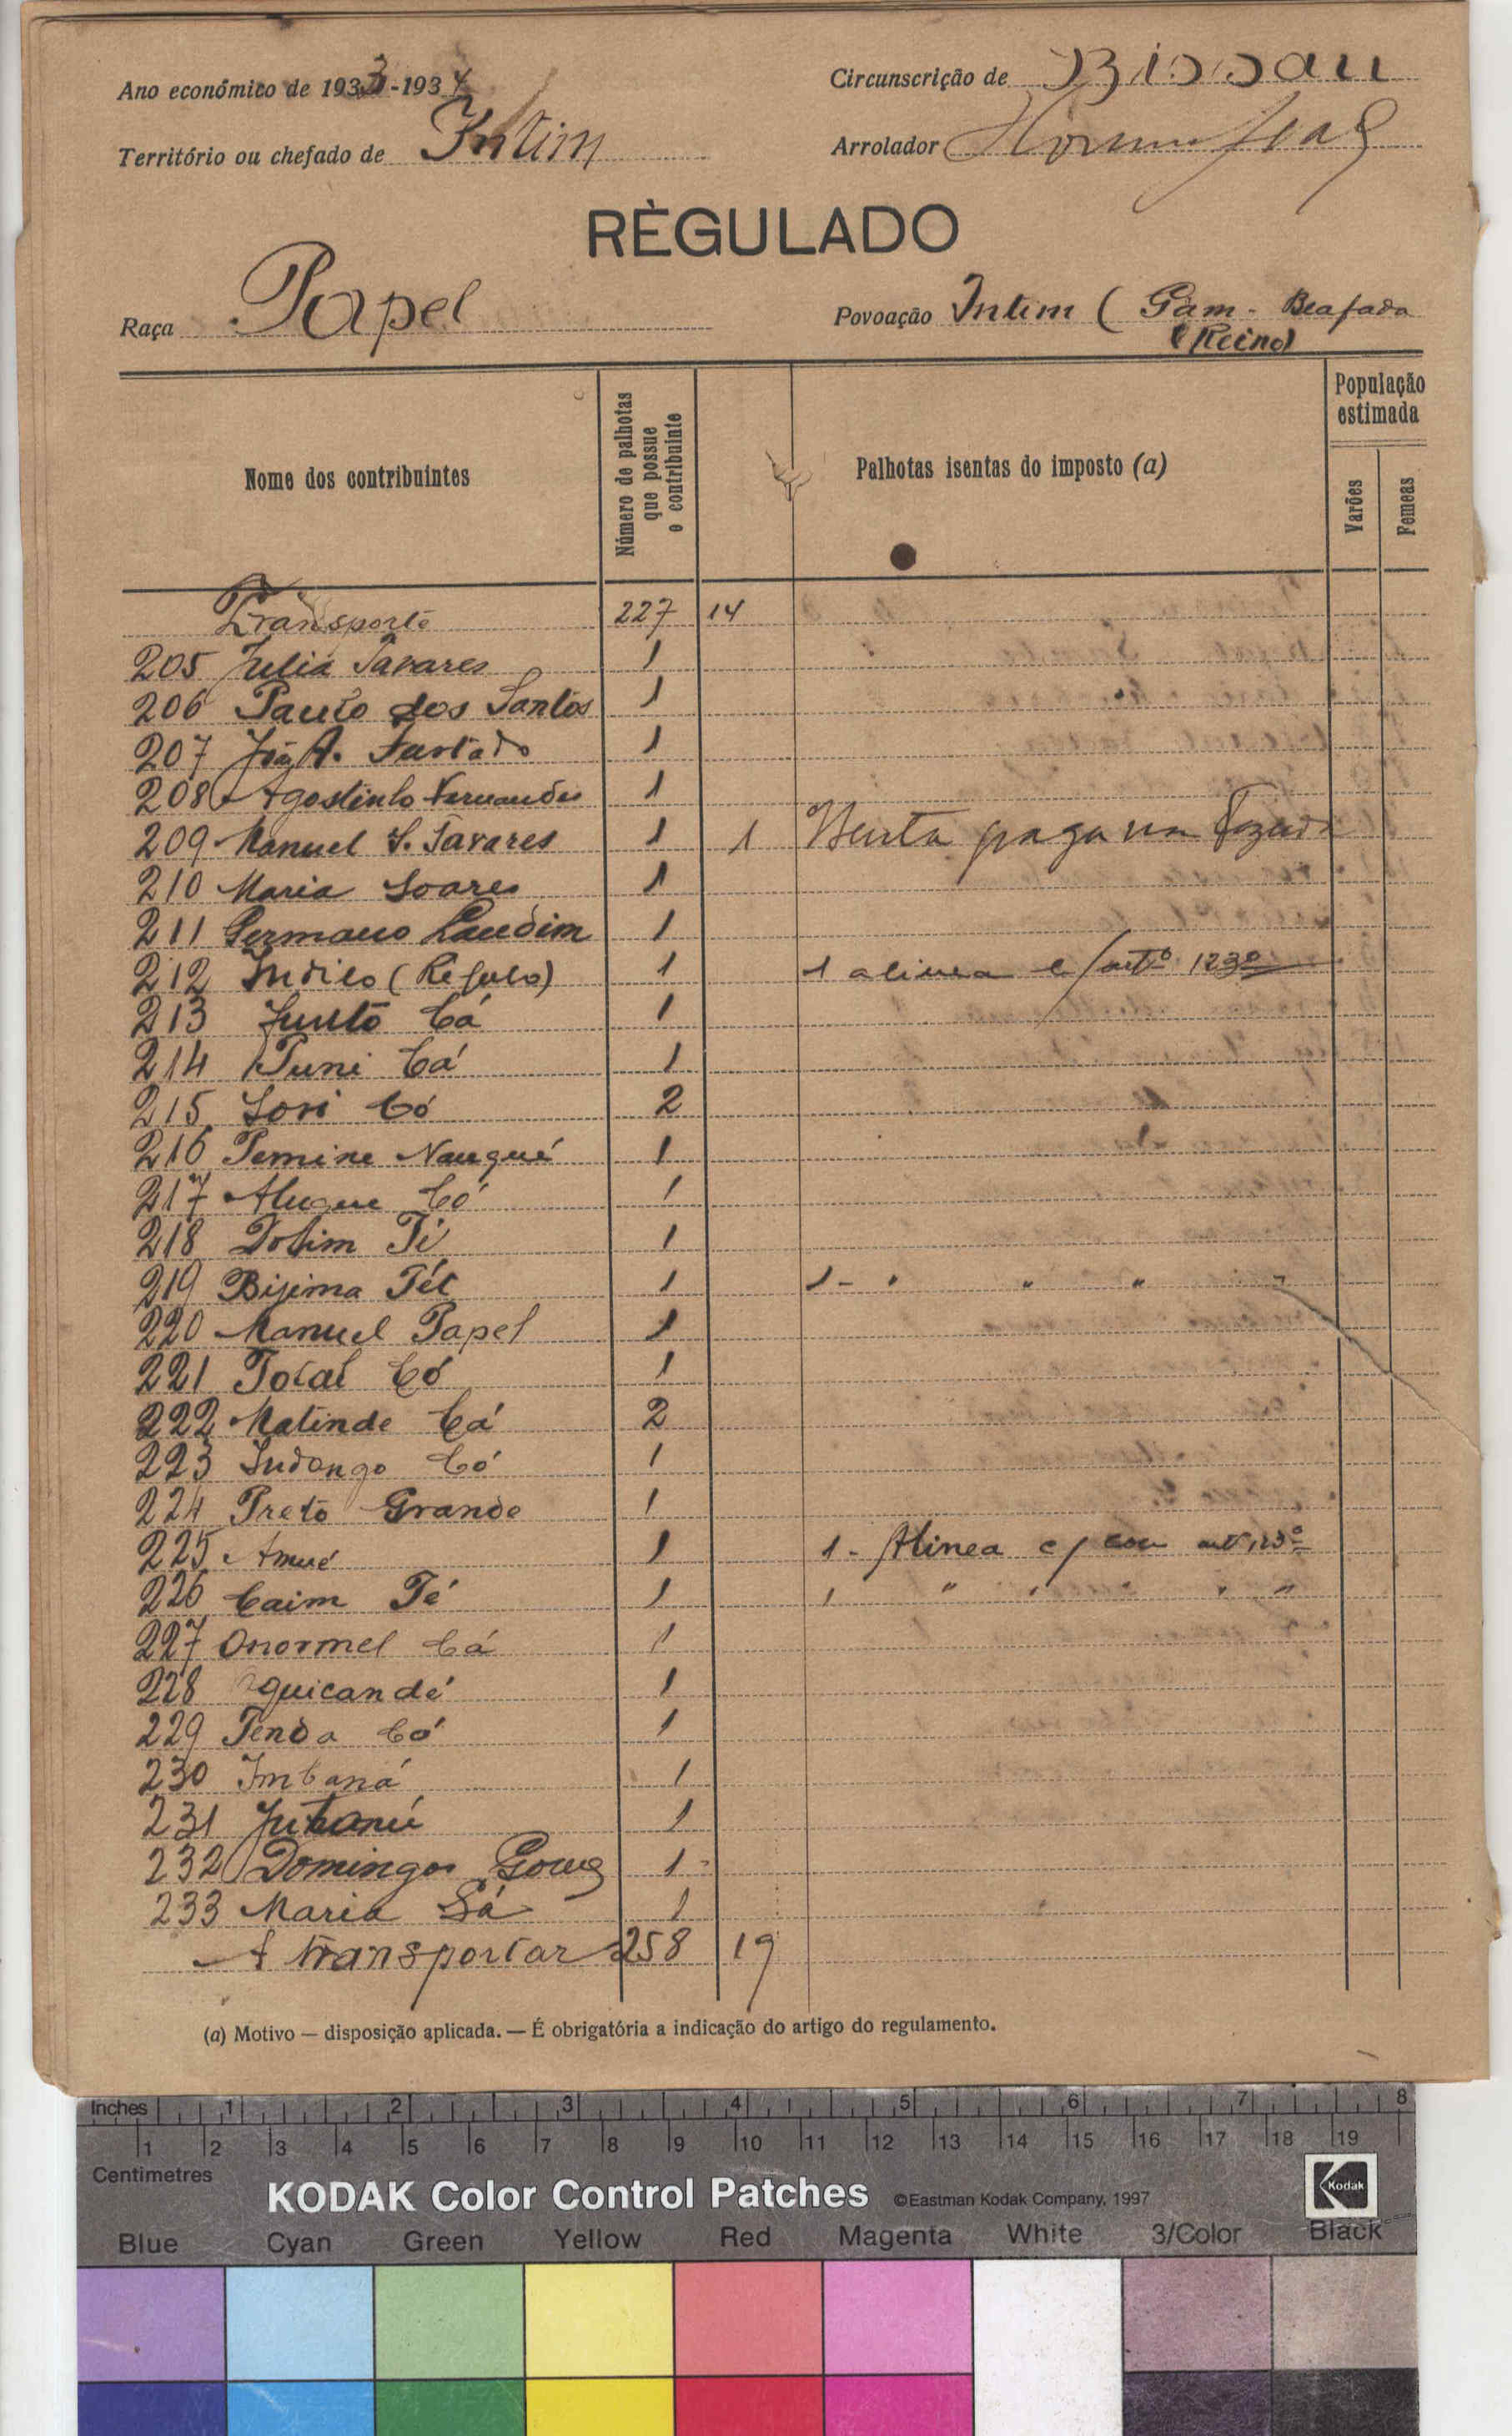 Ano económico de 1933-1934
Circunscrição de Bissau
Território ou chefado de Intim
Arrolador
RÈGULADO
Raça Papel
Povoação Intim ( Gam - Beafada
(Reino)
Nome dos contribuintes
Número de palhotas que possue o contribuinte
Palhotas isentas do imposto (a)
População estimada
Varões
Femeas
Transporte 227 14
205 Julia Tavares 1
206 Paulo dos Santos 1
207 A. Furtado 1
208 Agostinho Fernandes 1
209 Manuel S. Tavares 1 1 paga na
210 Maria Soares 1
211 Germano Landim 1
212 Indilo (Régulo) 1 1 alinea e/artº 123º
213 Junto Cá 1
214 Puni Cá 1
215 Sori Có 2
216 Pemine Nanqué 1
217 Có 1
218 1
219 Bijima 1 1 - " " " "
220 Manuel Papel 1
221 Total Có 1
222 Matinde Cá 2
223 Indongo Có 1
224 Preto Grande 1
225 Amué 1 1 - Alinea c/ artº 123º
226 Caim Té 1 1 " " " " "
227 Onormel Cá 1
228 quicandé 1
229 Tenda Có 1
230 Imbaná 1
231 1
232 Domingos Gomes 1
233 Maria Sá 1
A transportar 258 19
(a) Motivo — disposição aplicada. — É obrigatória a indicação do artigo do regulamento.
Inches 1 2 3 4 5 6 7 8
1 2 3 4 5 6 7 8 9 10 11 12 13 14 15 16 17 18 19
Centimetres
KODAK Color Control Patches ©Eastman Kodak Company, 1997 Kodak
Blue Cyan Green Yellow Red Magenta White 3/Color Black